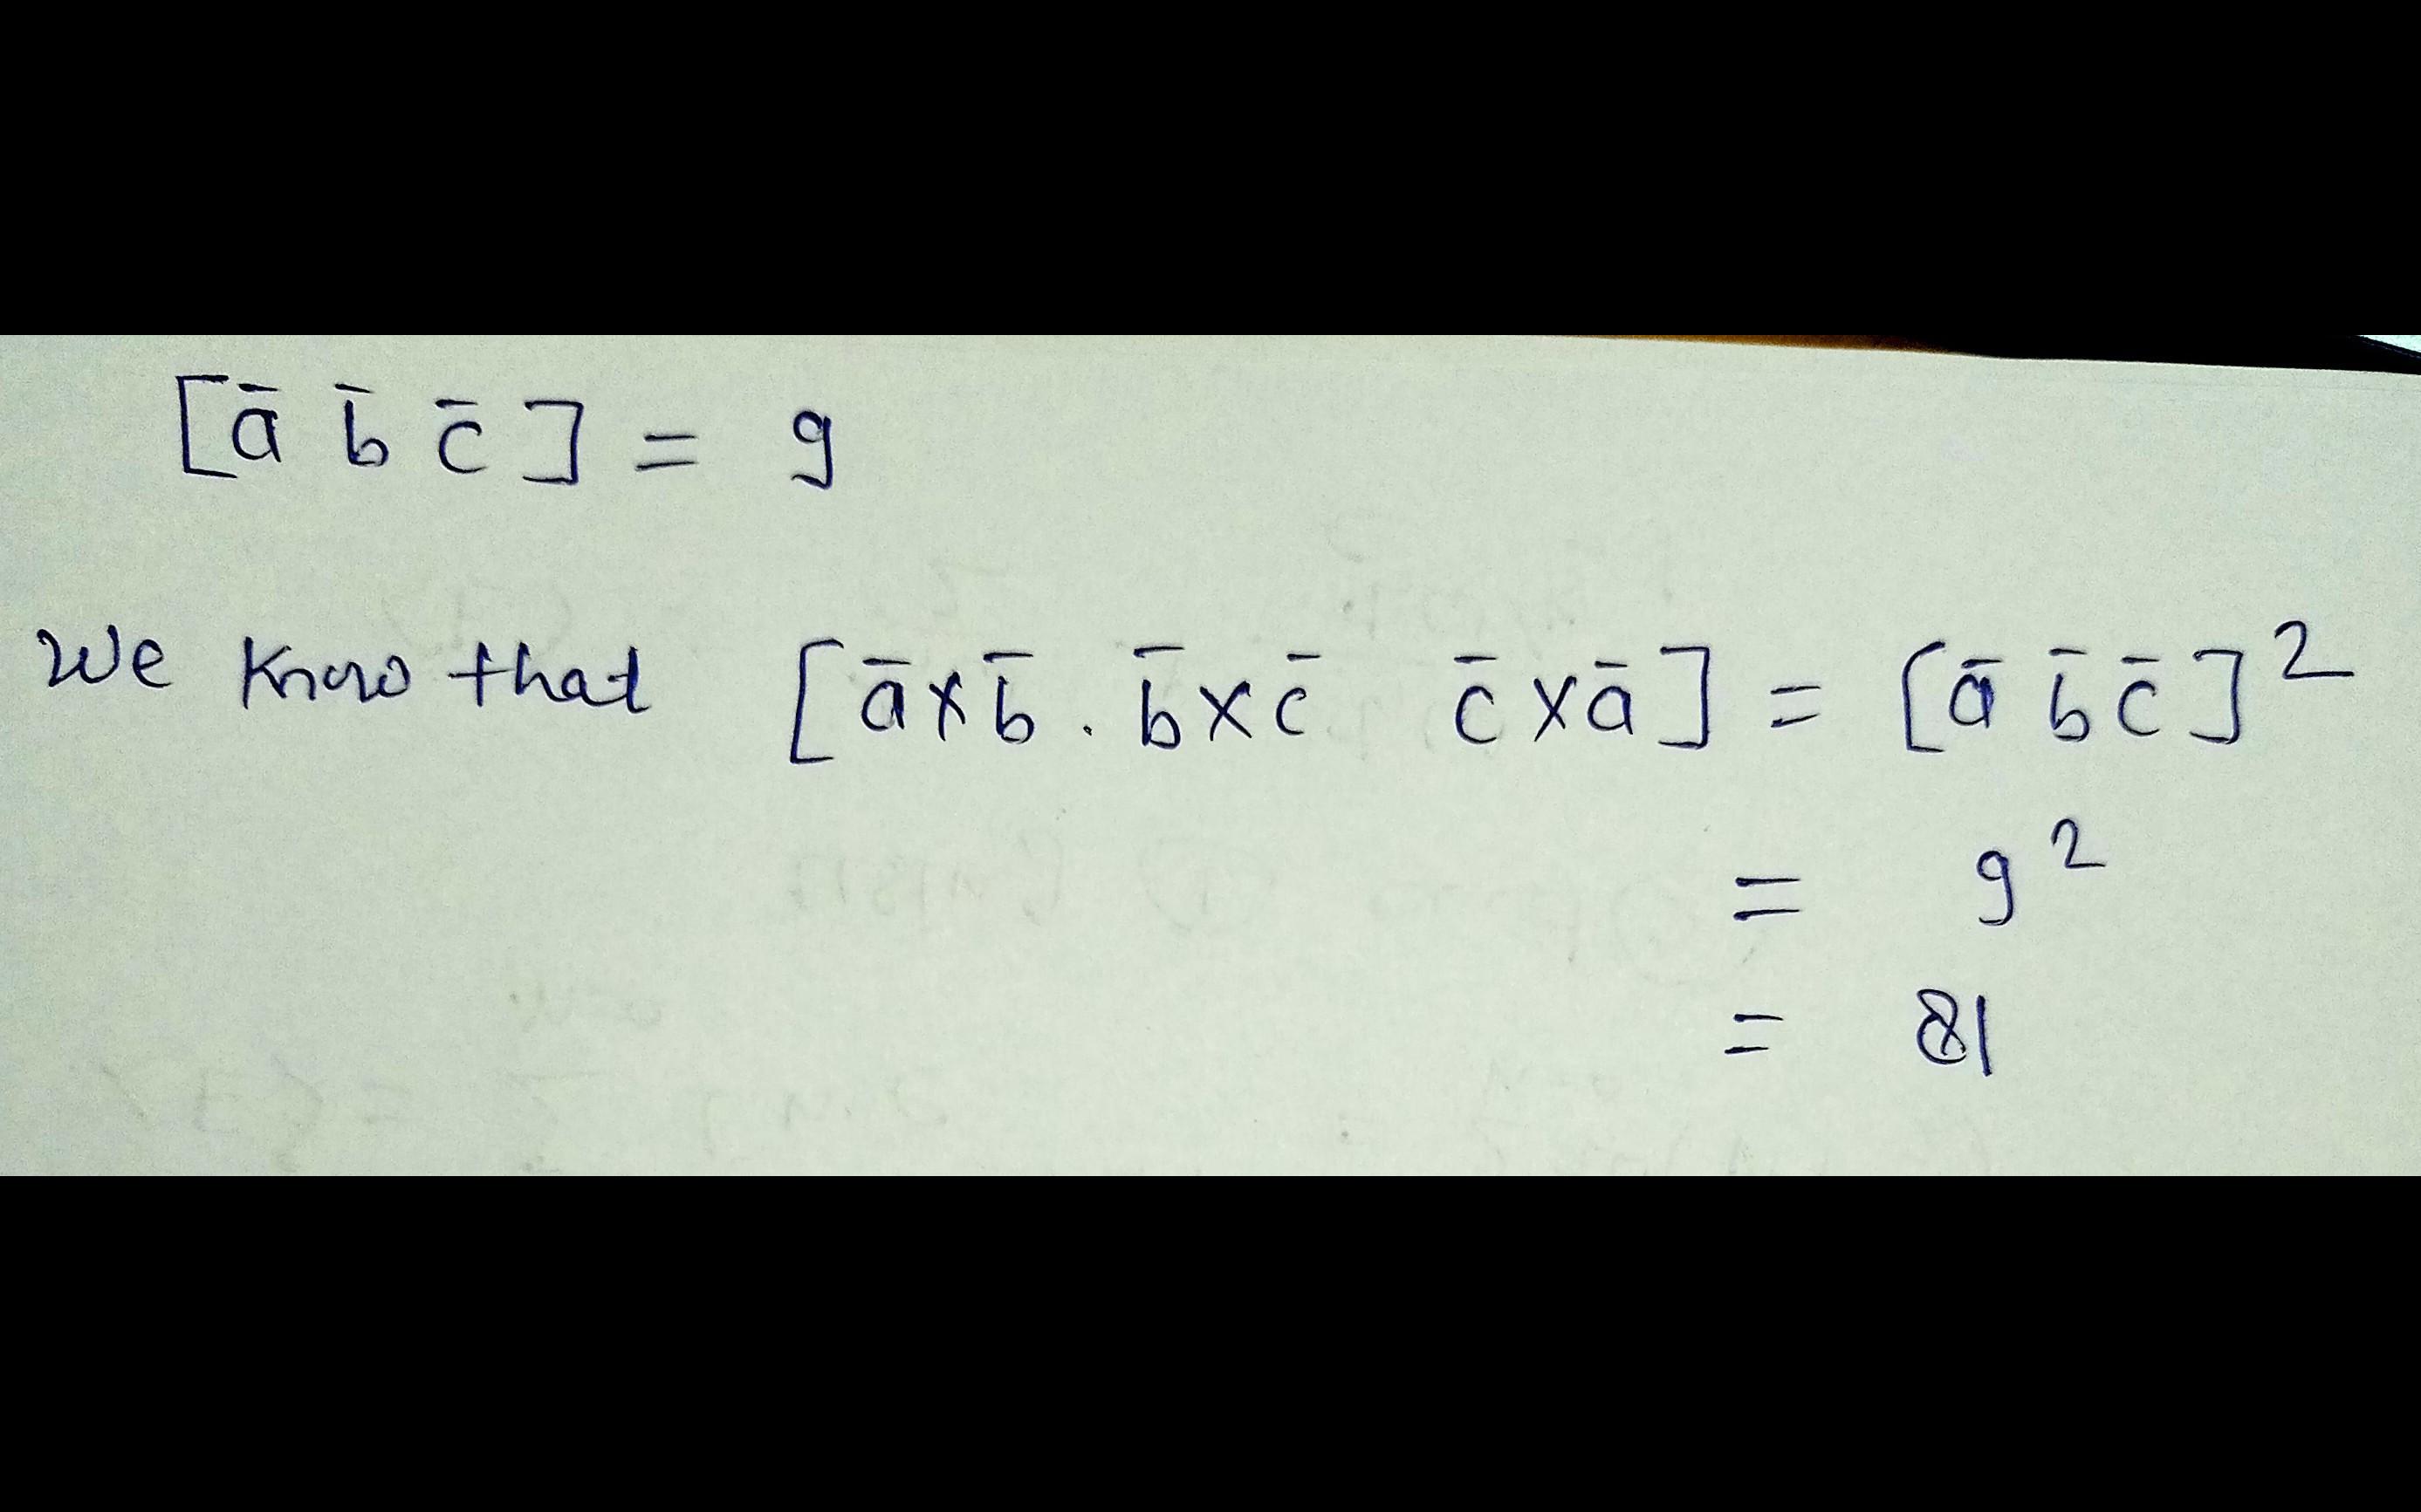 [ā b̄ c̄] = 9
We know that [ā×b̄ . b̄×c̄ c̄×ā] = [ā b̄ c̄]²
= 9²
= 81